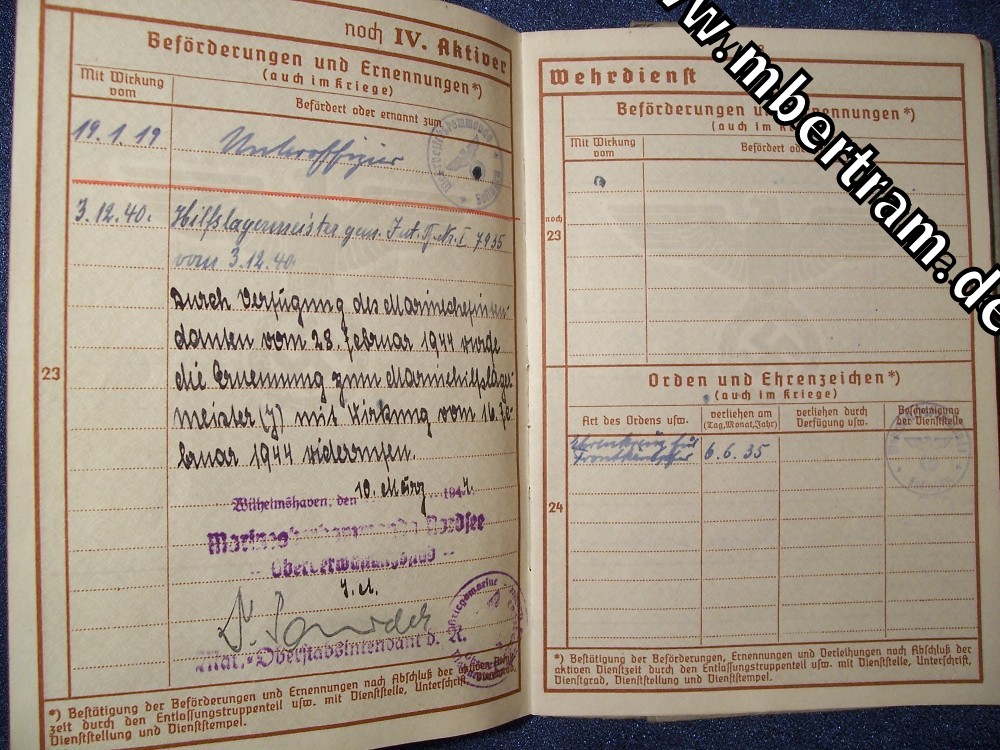 noch IV. Aktiver
Beförderungen und Ernennungen*)
(auch im Kriege)
Mit Wirkung
vom
Befördert oder ernannt zum
19.1.19 Unteroffizier
3.12.40. Hilfslagermeister gem. Int. T. Nr. I 7935
vom 3.12.40.
23
Durch Verfügung des Marinechefinten-
danten vom 28. Februar 1944 wurde
die Ernennung zum Marinehilfslager-
meister (J) mit Wirkung vom 16. Fe-
bruar 1944 widerrufen.
Wilhelmshaven, den 10. März 1944.
Marineoberkommando Nordsee
- Oberverwaltungsstab -
J.A.
Mar.-Oberstabsintendant d. R.
Kriegsmarine
*) Bestätigung der Beförderungen und Ernennungen nach Abschluß der aktiven Dienst-
zeit durch den Entlassungstruppenteil usw. mit Dienststelle, Unterschrift, Dienstgrad,
Dienststellung und Dienststempel.
www.mbertram.de
Wehrdienst
Beförderungen und Ernennungen*)
(auch im Kriege)
Mit Wirkung
vom
Befördert oder
noch
23
Orden und Ehrenzeichen*)
(auch im Kriege)
Art des Ordens usw.
verliehen am
(Tag, Monat, Jahr)
verliehen durch
Verfügung usw.
Bescheinigung
der Dienststelle
Ehrenkreuz für
Frontkämpfer 6.6.35
24
*) Bestätigung der Beförderungen, Ernennungen und Verleihungen nach Abschluß der
aktiven Dienstzeit durch den Entlassungstruppenteil usw. mit Dienststelle, Unterschrift,
Dienstgrad, Dienststellung und Dienststempel.